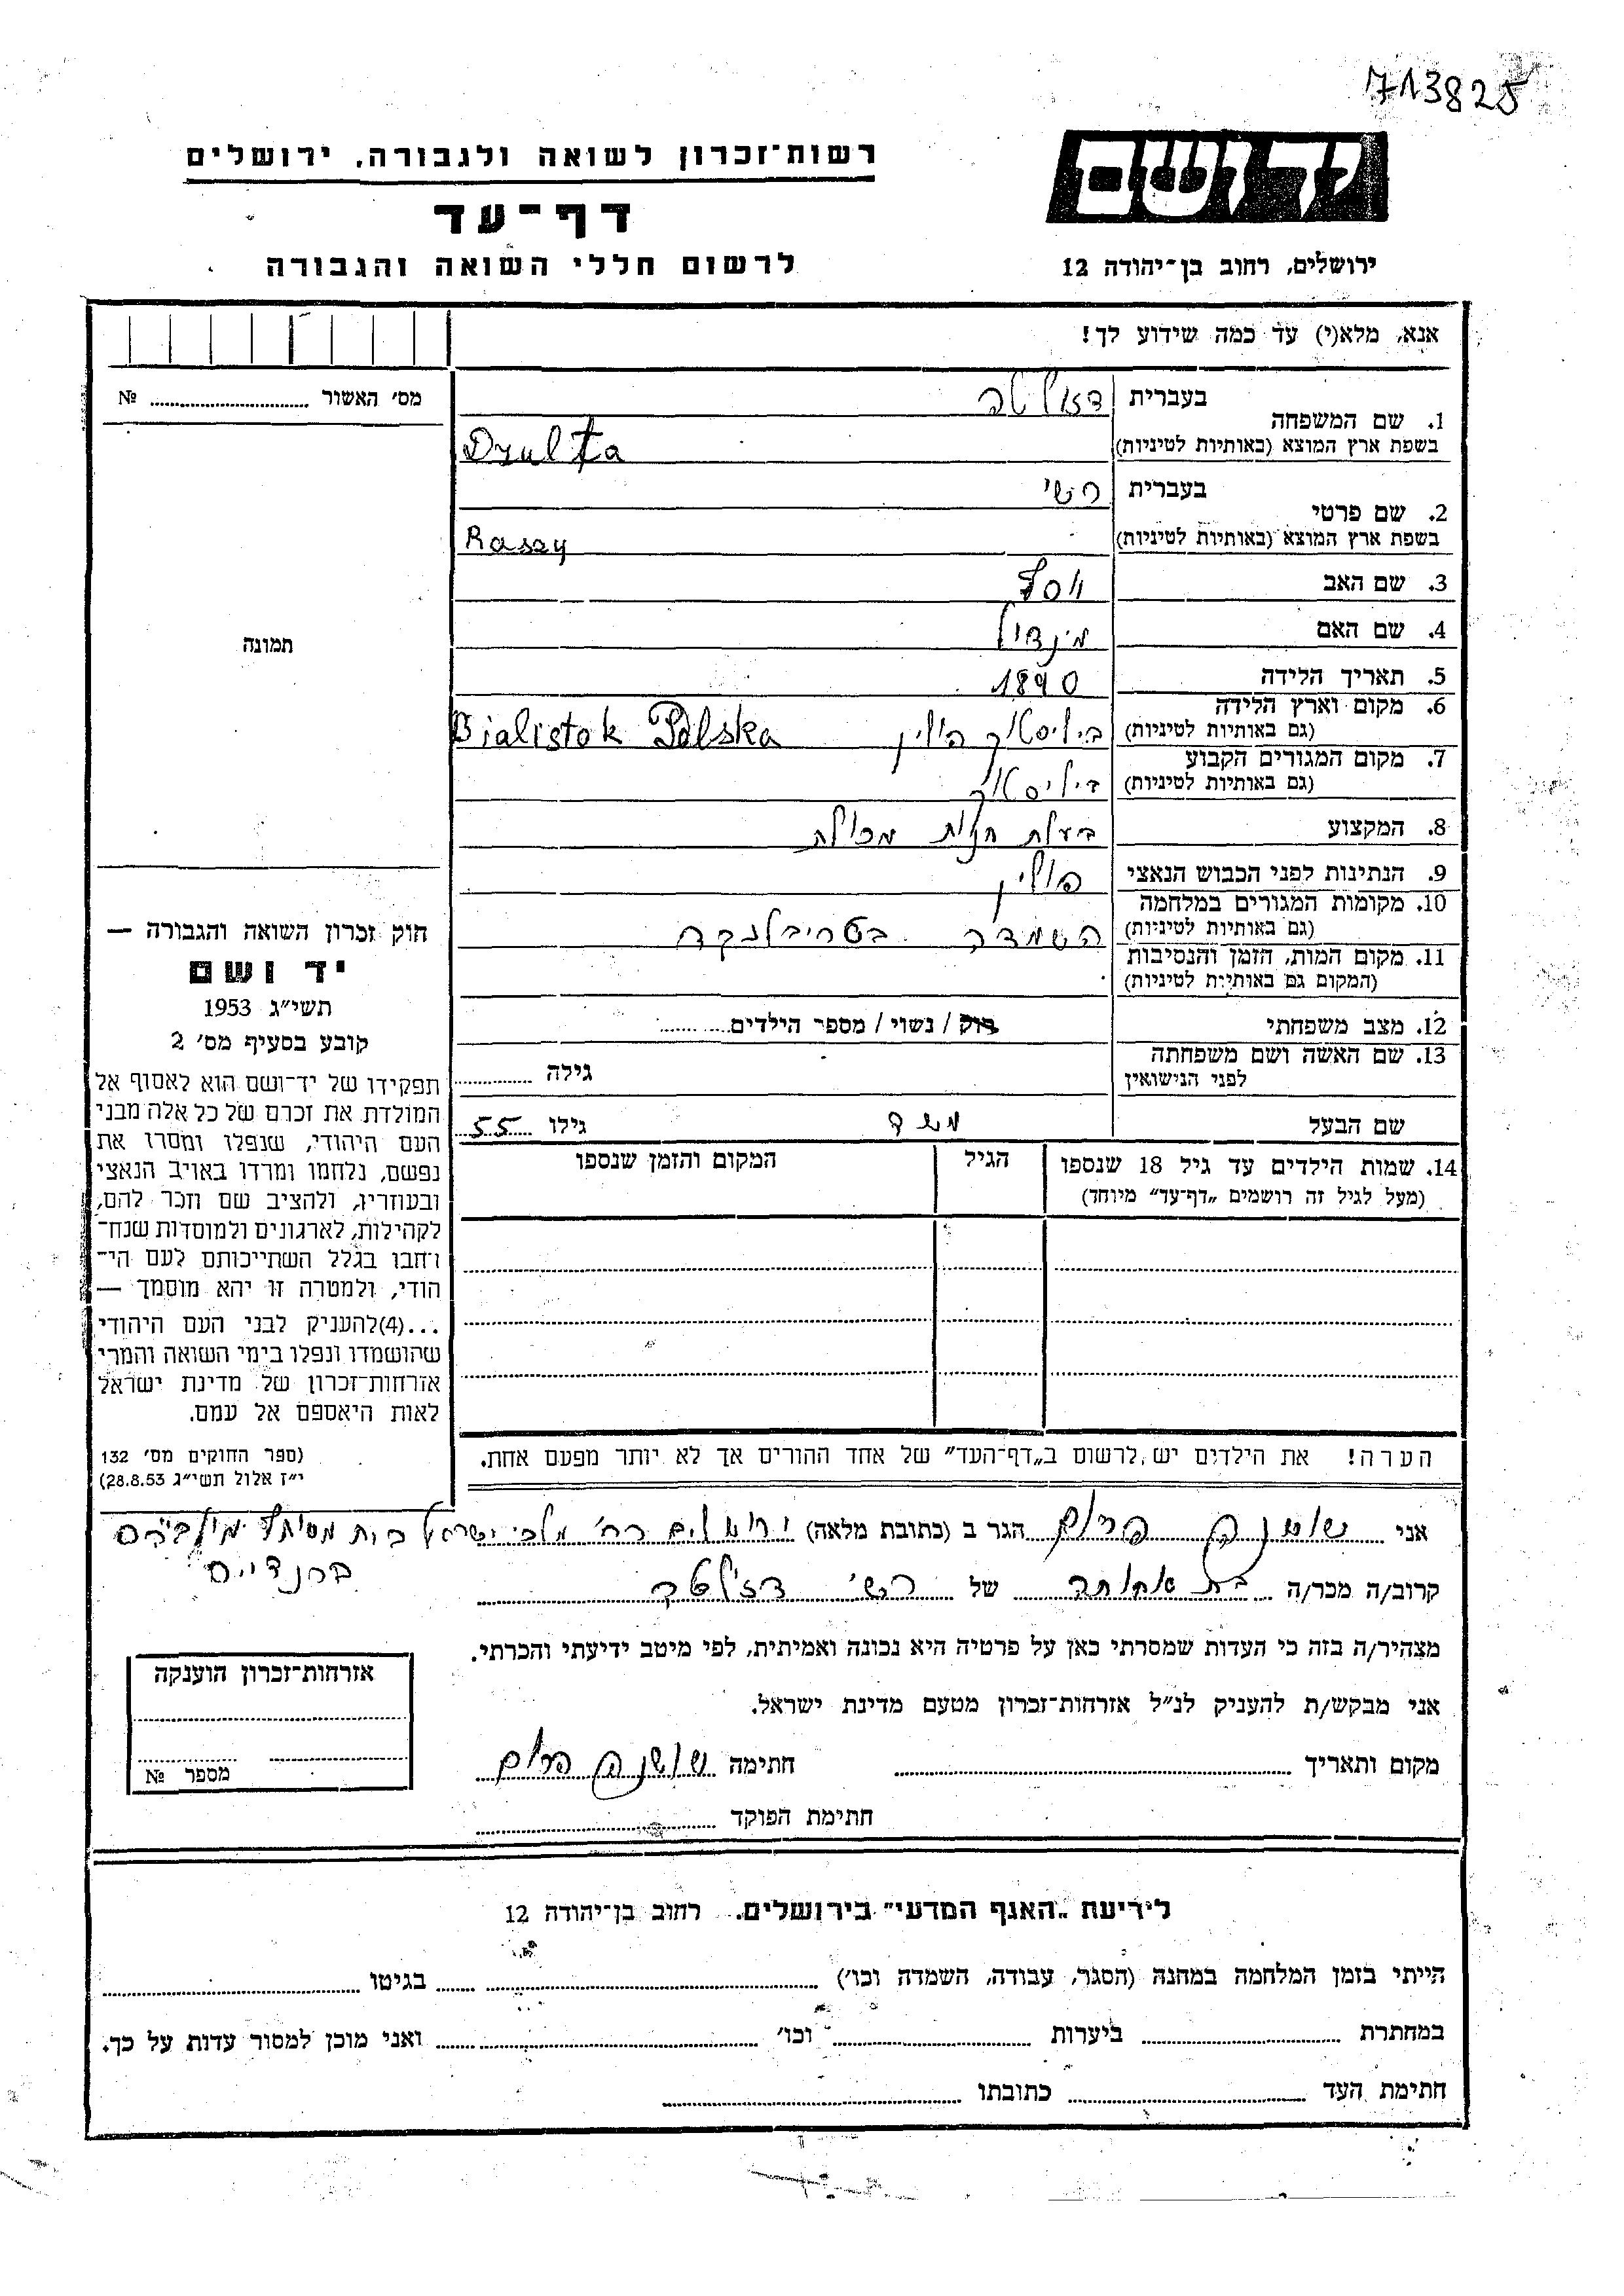 713825
יד ושם
ירושלים, רחוב בן־יהודה 12
רשות־זכרון לשואה ולגבורה, ירושלים
דף־עד
לרשום חללי השואה והגבורה
אנא, מלא(י) עד כמה שידוע לך!
מס' האשור № ....................
1. שם המשפחה
בעברית
בשפת ארץ המוצא (באותיות לטיניות)
Dzulta
2. שם פרטי
בעברית רשי
בשפת ארץ המוצא (באותיות לטיניות)
Raszy
3. שם האב יוסף
4. שם האם
5. תאריך הלידה 1890
6. מקום וארץ הלידה
(גם באותיות לטיניות)
Bialistok Polska
7. מקום המגורים הקבוע
(גם באותיות לטיניות)
8. המקצוע בעלת חנות מכולת
9. הנתינות לפני הכבוש הנאצי פולין
10. מקומות המגורים במלחמה
(גם באותיות לטיניות)
השמדה בטריבלנקה
11. מקום המות, הזמן והנסיבות
(המקום גם באותיות לטיניות)
12. מצב משפחתי רוק / נשוי / מספר הילדים
13. שם האשה ושם משפחתה
לפני הנישואין
גילה
שם הבעל משה גילו 55
14. שמות הילדים עד גיל 18 שנספו
(מעל לגיל זה רושמים „דף־עד" מיוחד)
הגיל
המקום והזמן שנספו
הערה! את הילדים יש לרשום ב„דף־העד" של אחד ההורים אך לא יותר מפעם אחת.
תמונה
חוק זכרון השואה והגבורה —
יד ושם
תשי"ג 1953
קובע בסעיף מס' 2
תפקידו של יד־ושם הוא לאסוף אל
המולדת את זכרם של כל אלה מבני
העם היהודי, שנפלו ומסרו את
נפשם, נלחמו ומרדו באויב הנאצי
ובעוזריו, ולהציב שם וזכר להם,
לקהילות, לארגונים ולמוסדות שנח־
רבו בגלל השתייכותם לעם הי־
הודי, ולמטרה זו יהא מוסמך —
...(4)להעניק לבני העם היהודי
שהושמדו ונפלו בימי השואה והמרי
אזרחות־זכרון של מדינת ישראל
לאות היאספם אל עמם.
(ספר החוקים מס' 132
י"ז אלול תשי"ג 28.8.53)
אני שושנה הגר ב (כתובת מלאה) ירושלים רח' מלכי ישראל בית
קרוב/ה מכר/ה בת אחותה של רשי
מצהיר/ה בזה כי העדות שמסרתי כאן על פרטיה היא נכונה ואמיתית, לפי מיטב ידיעתי והכרתי.
אני מבקש/ת להעניק לנ"ל אזרחות־זכרון מטעם מדינת ישראל.
מקום ותאריך ........ חתימה שושנה
חתימת הפוקד
אזרחות־זכרון הוענקה
מספר №
לידיעת „האגף המדעי" בירושלים. רחוב בן־יהודה 12
הייתי בזמן המלחמה במחנה (הסגר, עבודה, השמדה וכו') ........ בגיטו ........
במחתרת ........ ביערות ........ וכו' ........ ואני מוכן למסור עדות על כך.
חתימת העד ........ כתובתו ........